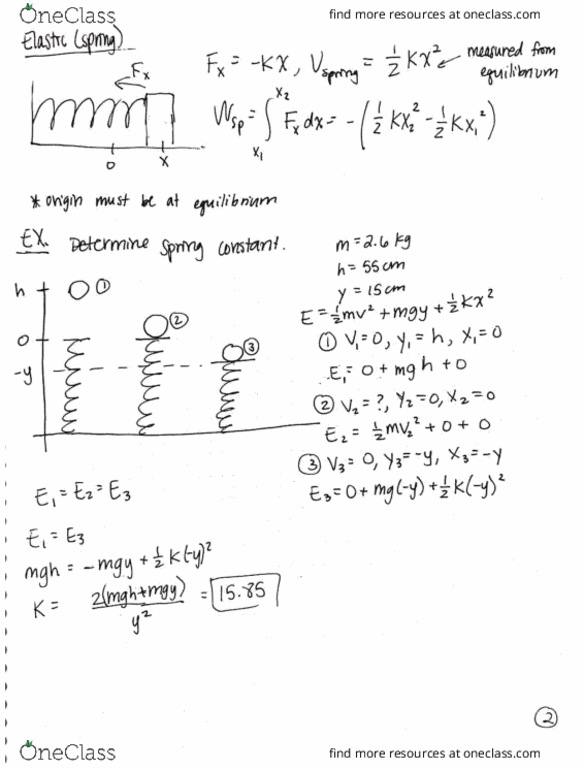 OneClass find more resources at oneclass.com
Elastic (spring)
Fx = -Kx, Vspring = 1/2 Kx² ← measured from equilibrium
Fx
0 x
Wsp = ∫x1^x2 Fx dx = -(1/2 Kx2² - 1/2 Kx1²)
* origin must be at equilibrium
EX. Determine spring constant.
m = 2.6 kg
h = 55 cm
y = 15 cm
h ①
②
0 ③
-y
E = 1/2 mv² + mgy + 1/2 Kx²
① V1 = 0, y1 = h, x1 = 0
E1 = 0 + mgh + 0
② V2 = ?, Y2 = 0, X2 = 0
E2 = 1/2 mV2² + 0 + 0
③ V3 = 0, Y3 = -y, X3 = -y
E3 = 0 + mg(-y) + 1/2 K(-y)²
E1 = E2 = E3
E1 = E3
mgh = -mgy + 1/2 K(-y)²
K = 2(mgh+mgy)/y² = 15.85
2
OneClass find more resources at oneclass.com